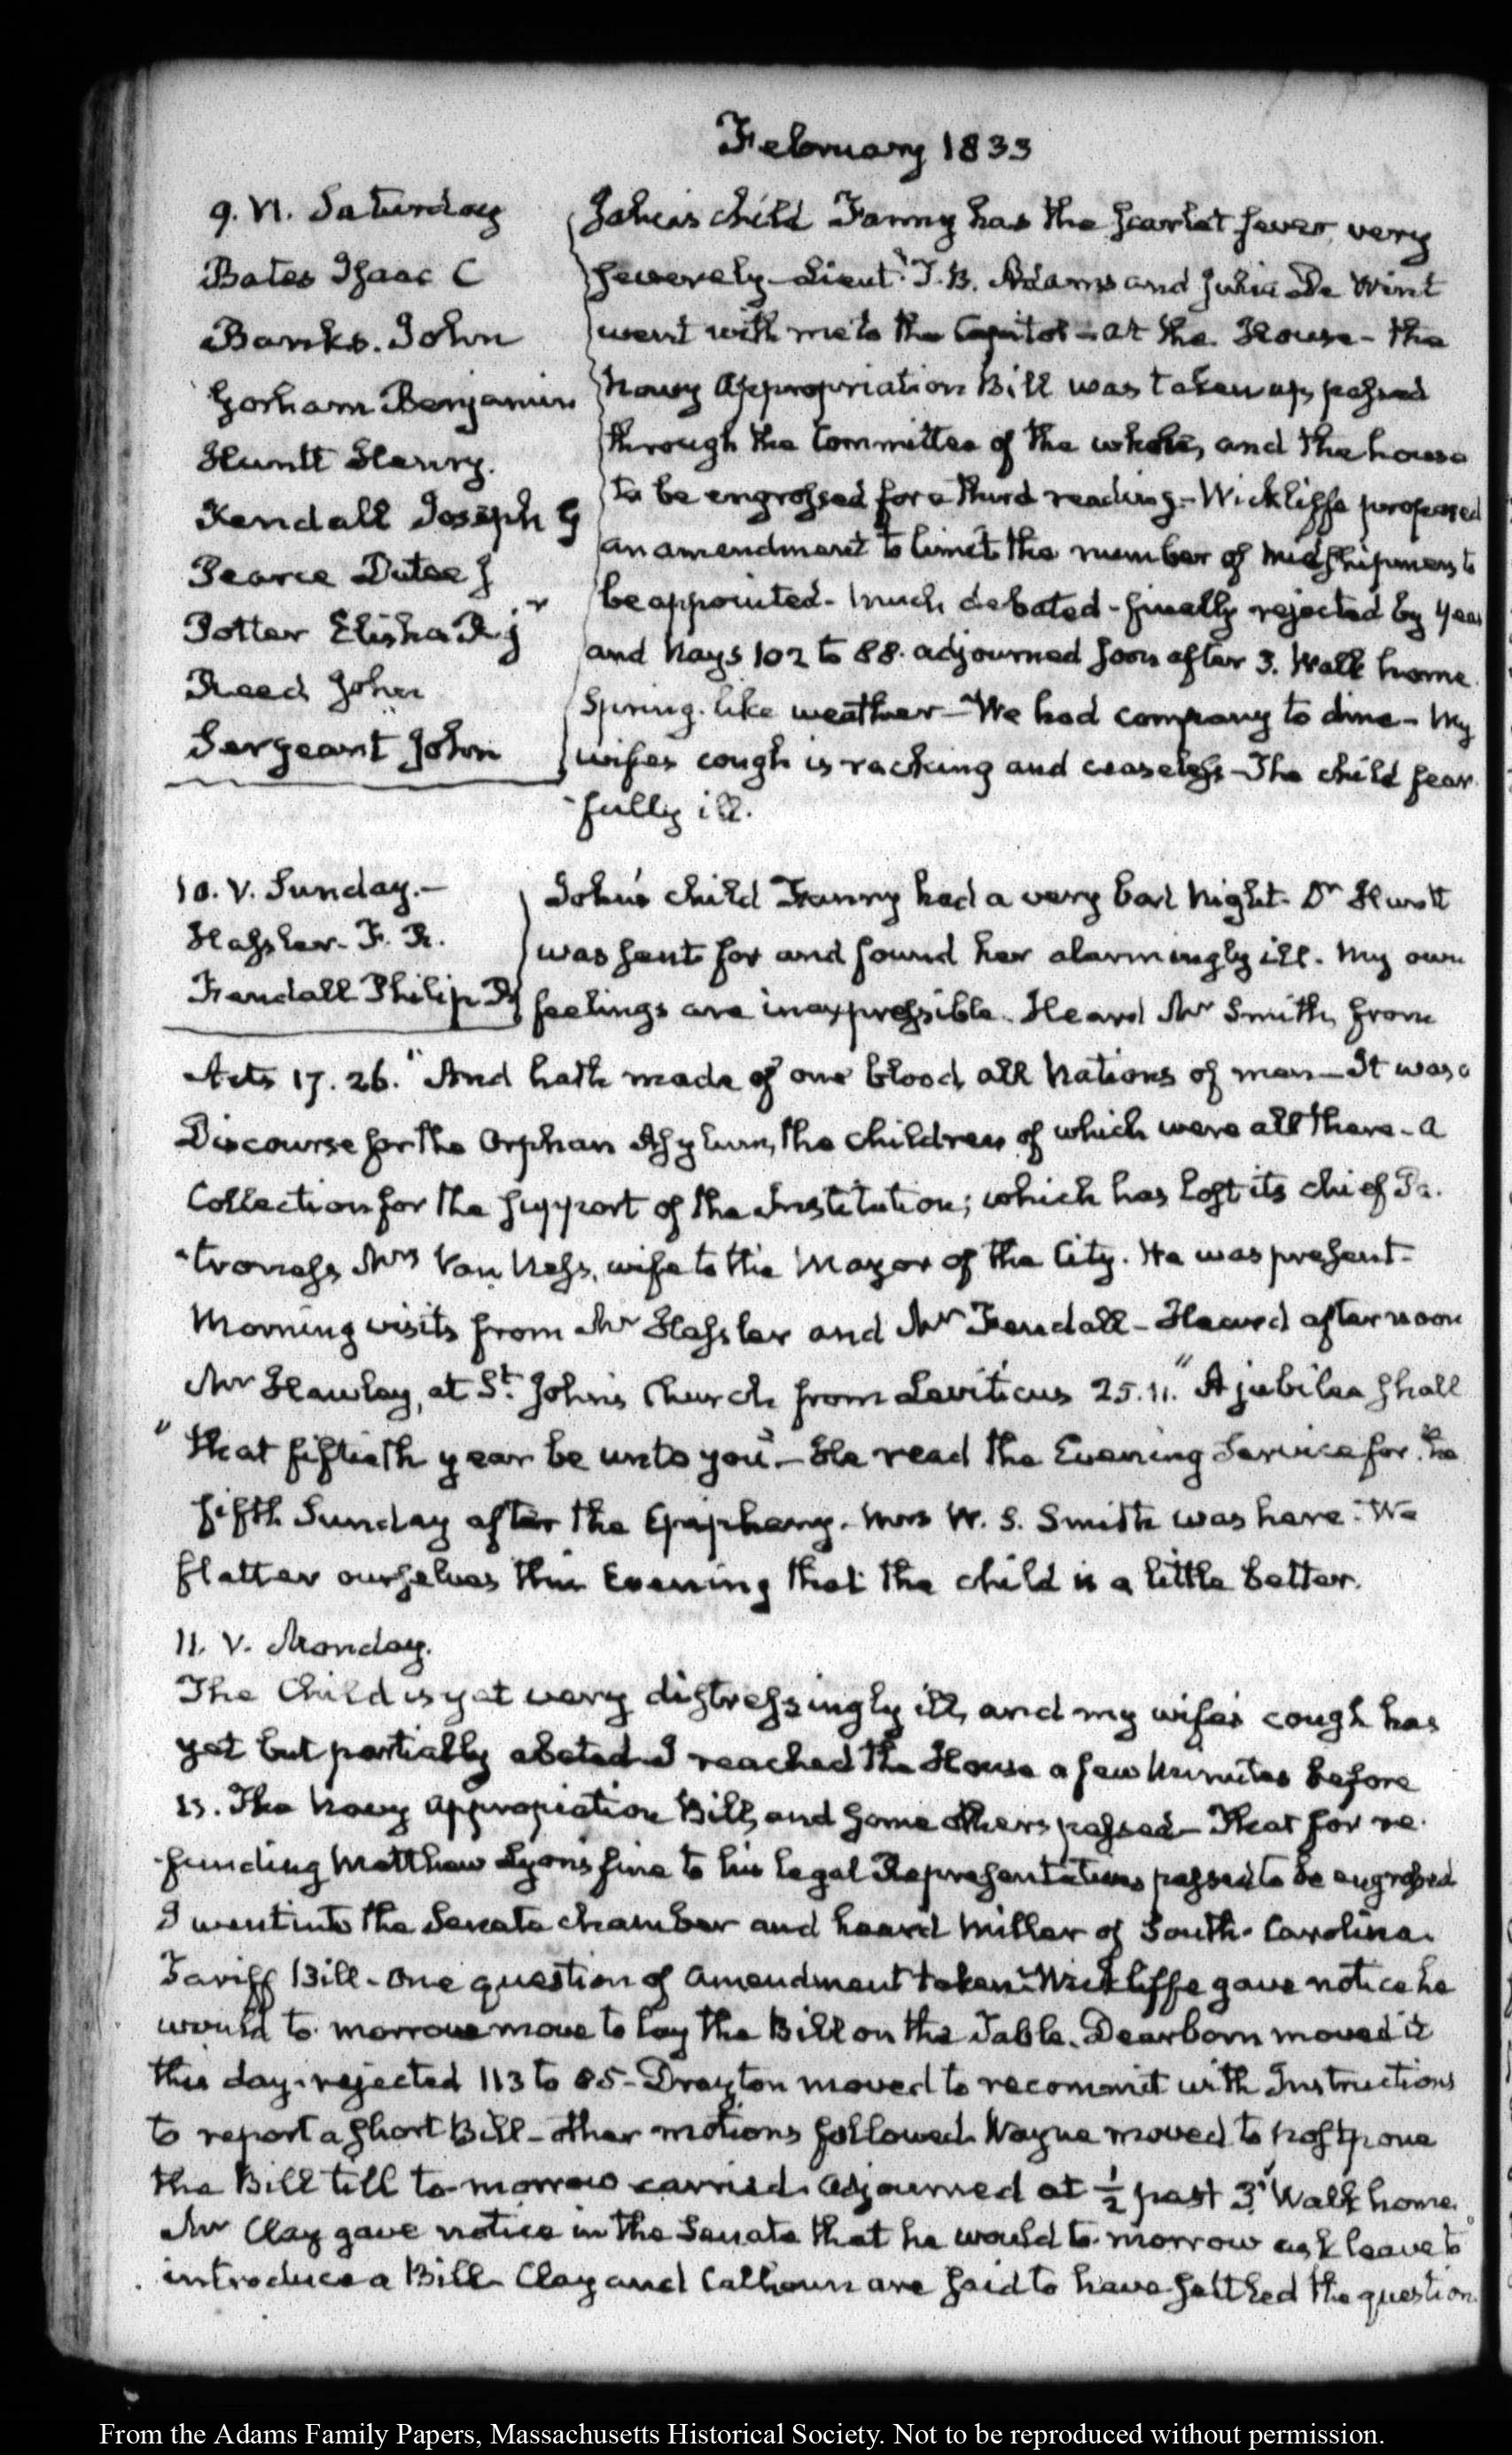 February 1833
9. VI. Saturday
Bates Isaac C
Banks. John
Gorham Benjamin
Huntt Henry.
Kendall Joseph G
Pearce Dutee J
Potter Elisha R. jr
Reed John
Sergeant John
John's child Fanny has the scarlet fever very
severely – Lieutt. T. B. Adams and Julia De Wint
went with me to the Capitol – at the House – the
Navy Appropriation Bill was taken up, passed
through the Committee of the whole, and the house
to be engrossed for a third reading – Wickliffe proposed
an amendment to limit the number of midshipmen to
be appointed – much debated – finally rejected by yeas
and Nays 102 to 88. adjourned soon after 3. Walk home
Spring-like weather – We had company to dine – My
wifes cough is racking and ceaseless – The child fear
-fully ill.
10. V. Sunday. –
Hassler – F. R.
Fendall Philip R
John's child Fanny had a very bad Night – Dr Huntt
was sent for and found her alarmingly ill. My own
feelings are inexpressible. Heard Mr Smith, from
Acts 17. 26. "And hath made of one blood, all Nations of men – It was a
Discourse for the Orphan Asylum, the children of which were all there – a
Collection for the support of the Institution; which has lost its chief Pa-
-troness, Mrs Van Ness, wife to the Mayor of the City. He was present –
Morning visits from Mr Hassler and Mr Fendall – Heard afternoon
Mr Hawley, at St. John's Church from Leviticus 25. 11. "A jubilee shall
"that fiftieth year be unto you" – He read the Evening Service for the
fifth Sunday after the Epiphany – Mrs W. S. Smith was here. We
flatter ourselves this Evening that the child is a little better.
11. V. Monday.
The Child is yet very distressingly ill, and my wife's cough has
yet but partially abated – I reached the House a few minutes before
12. The Navy appropriation Bill, and some others passed – That for re-
-funding Matthew Lyon's fine to his legal Representatives passed to be engrossed
I went into the Senate chamber and heard Miller of South-Carolina.
Tariff Bill – One question of amendment taken – Wickliffe gave notice he
would to-morrow move to lay the Bill on the Table. Dearborn moved it
this day – rejected 113 to 85 – Drayton moved to recommit with Instructions
to report a short Bill – other motions followed. Wayne moved to postpone
the Bill till to-morrow carried. Adjourned at ½ past 3. Walk home.
Mr Clay gave notice in the Senate that he would to-morrow ask leave to
introduce a Bill – Clay and Calhoun are said to have settled the question.
From the Adams Family Papers, Massachusetts Historical Society. Not to be reproduced without permission.